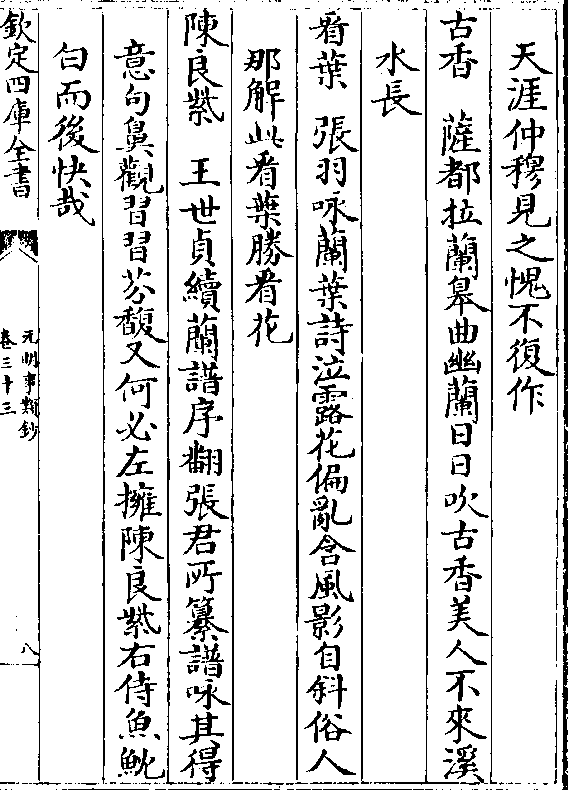 天涯仲穆見之愧不復作
古香　薩都拉蘭皋曲幽蘭日日吹古香美人不來溪
水長
看葉　張羽咏蘭葉詩泣露花偏亂含風影自斜俗人
那解此看葉勝看花
陳良紫　王世貞續蘭譜序翻張君所纂譜咏其得
意句鼻觀習習芬馥又何必左擁陳良紫右侍魚魫
白而後快哉
欽定四庫全書
元明事類鈔
卷三十三
八